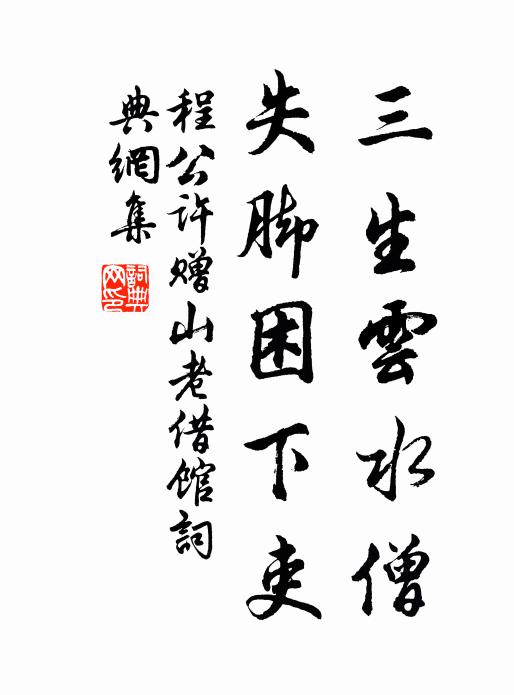 三生雲水僧
失脚困下吏
程公許赠山老借館詞
典網集
詞典网印